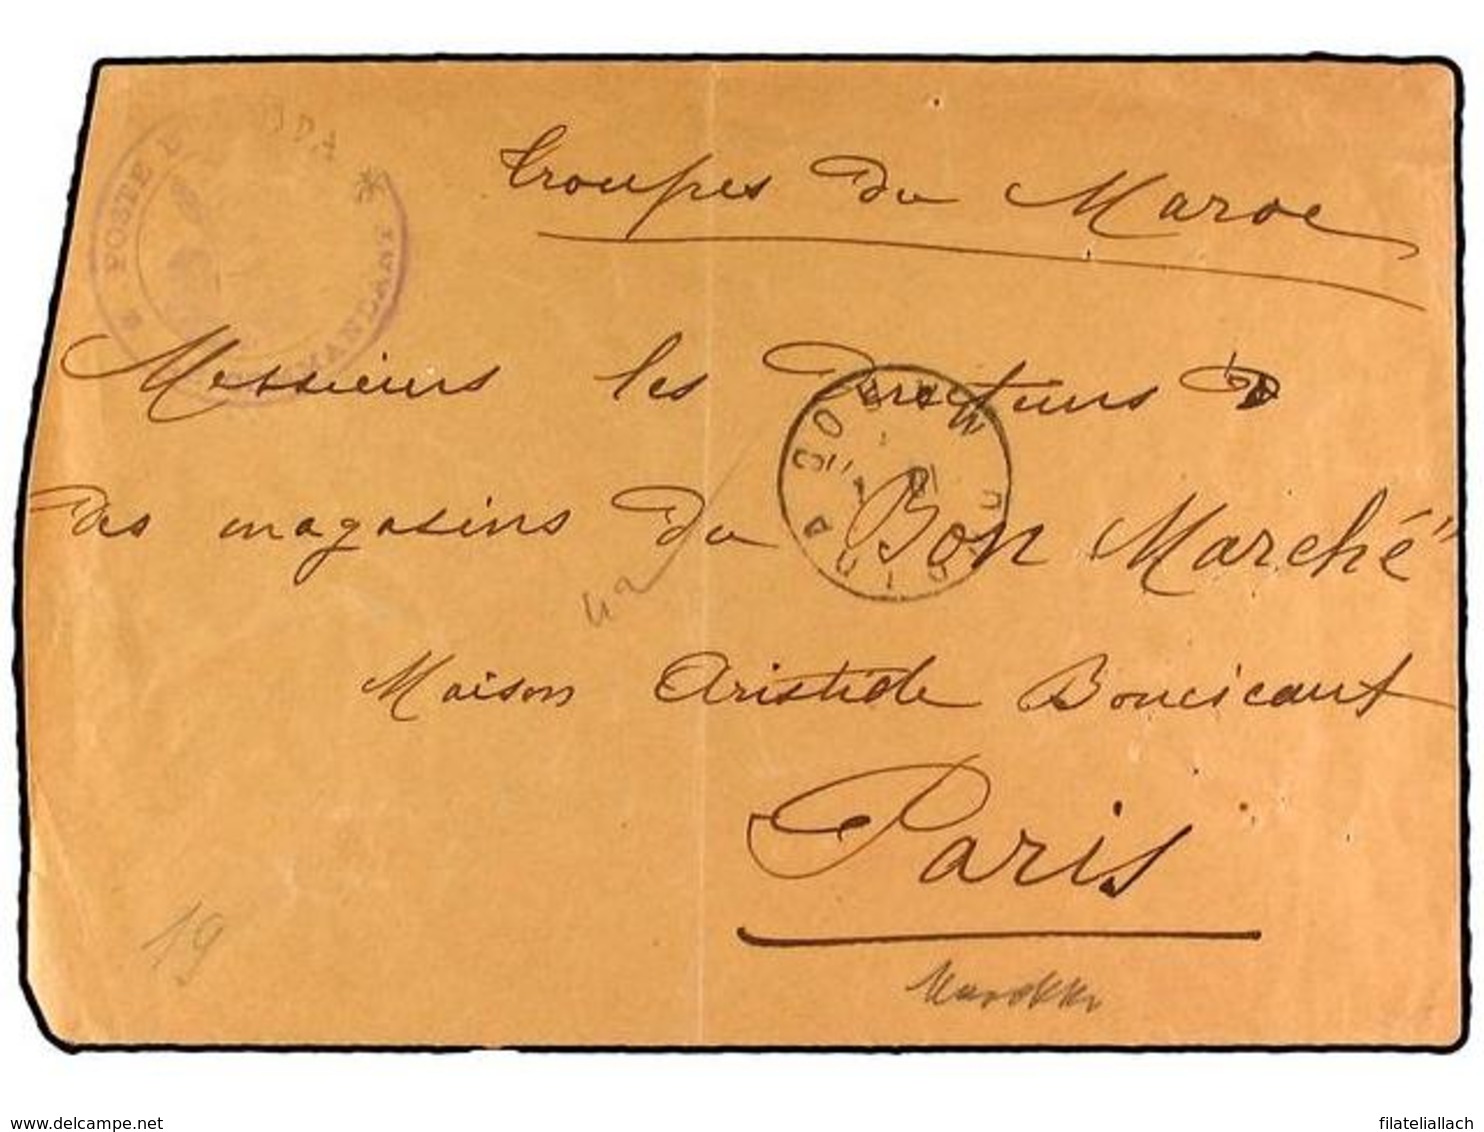 POSTE
Troupes du Maroc
Messieurs les Directeurs
des magasins du "Bon Marché"
Maison Aristide Boucicaut
Paris
19
www.delcampe.net
filateliallach